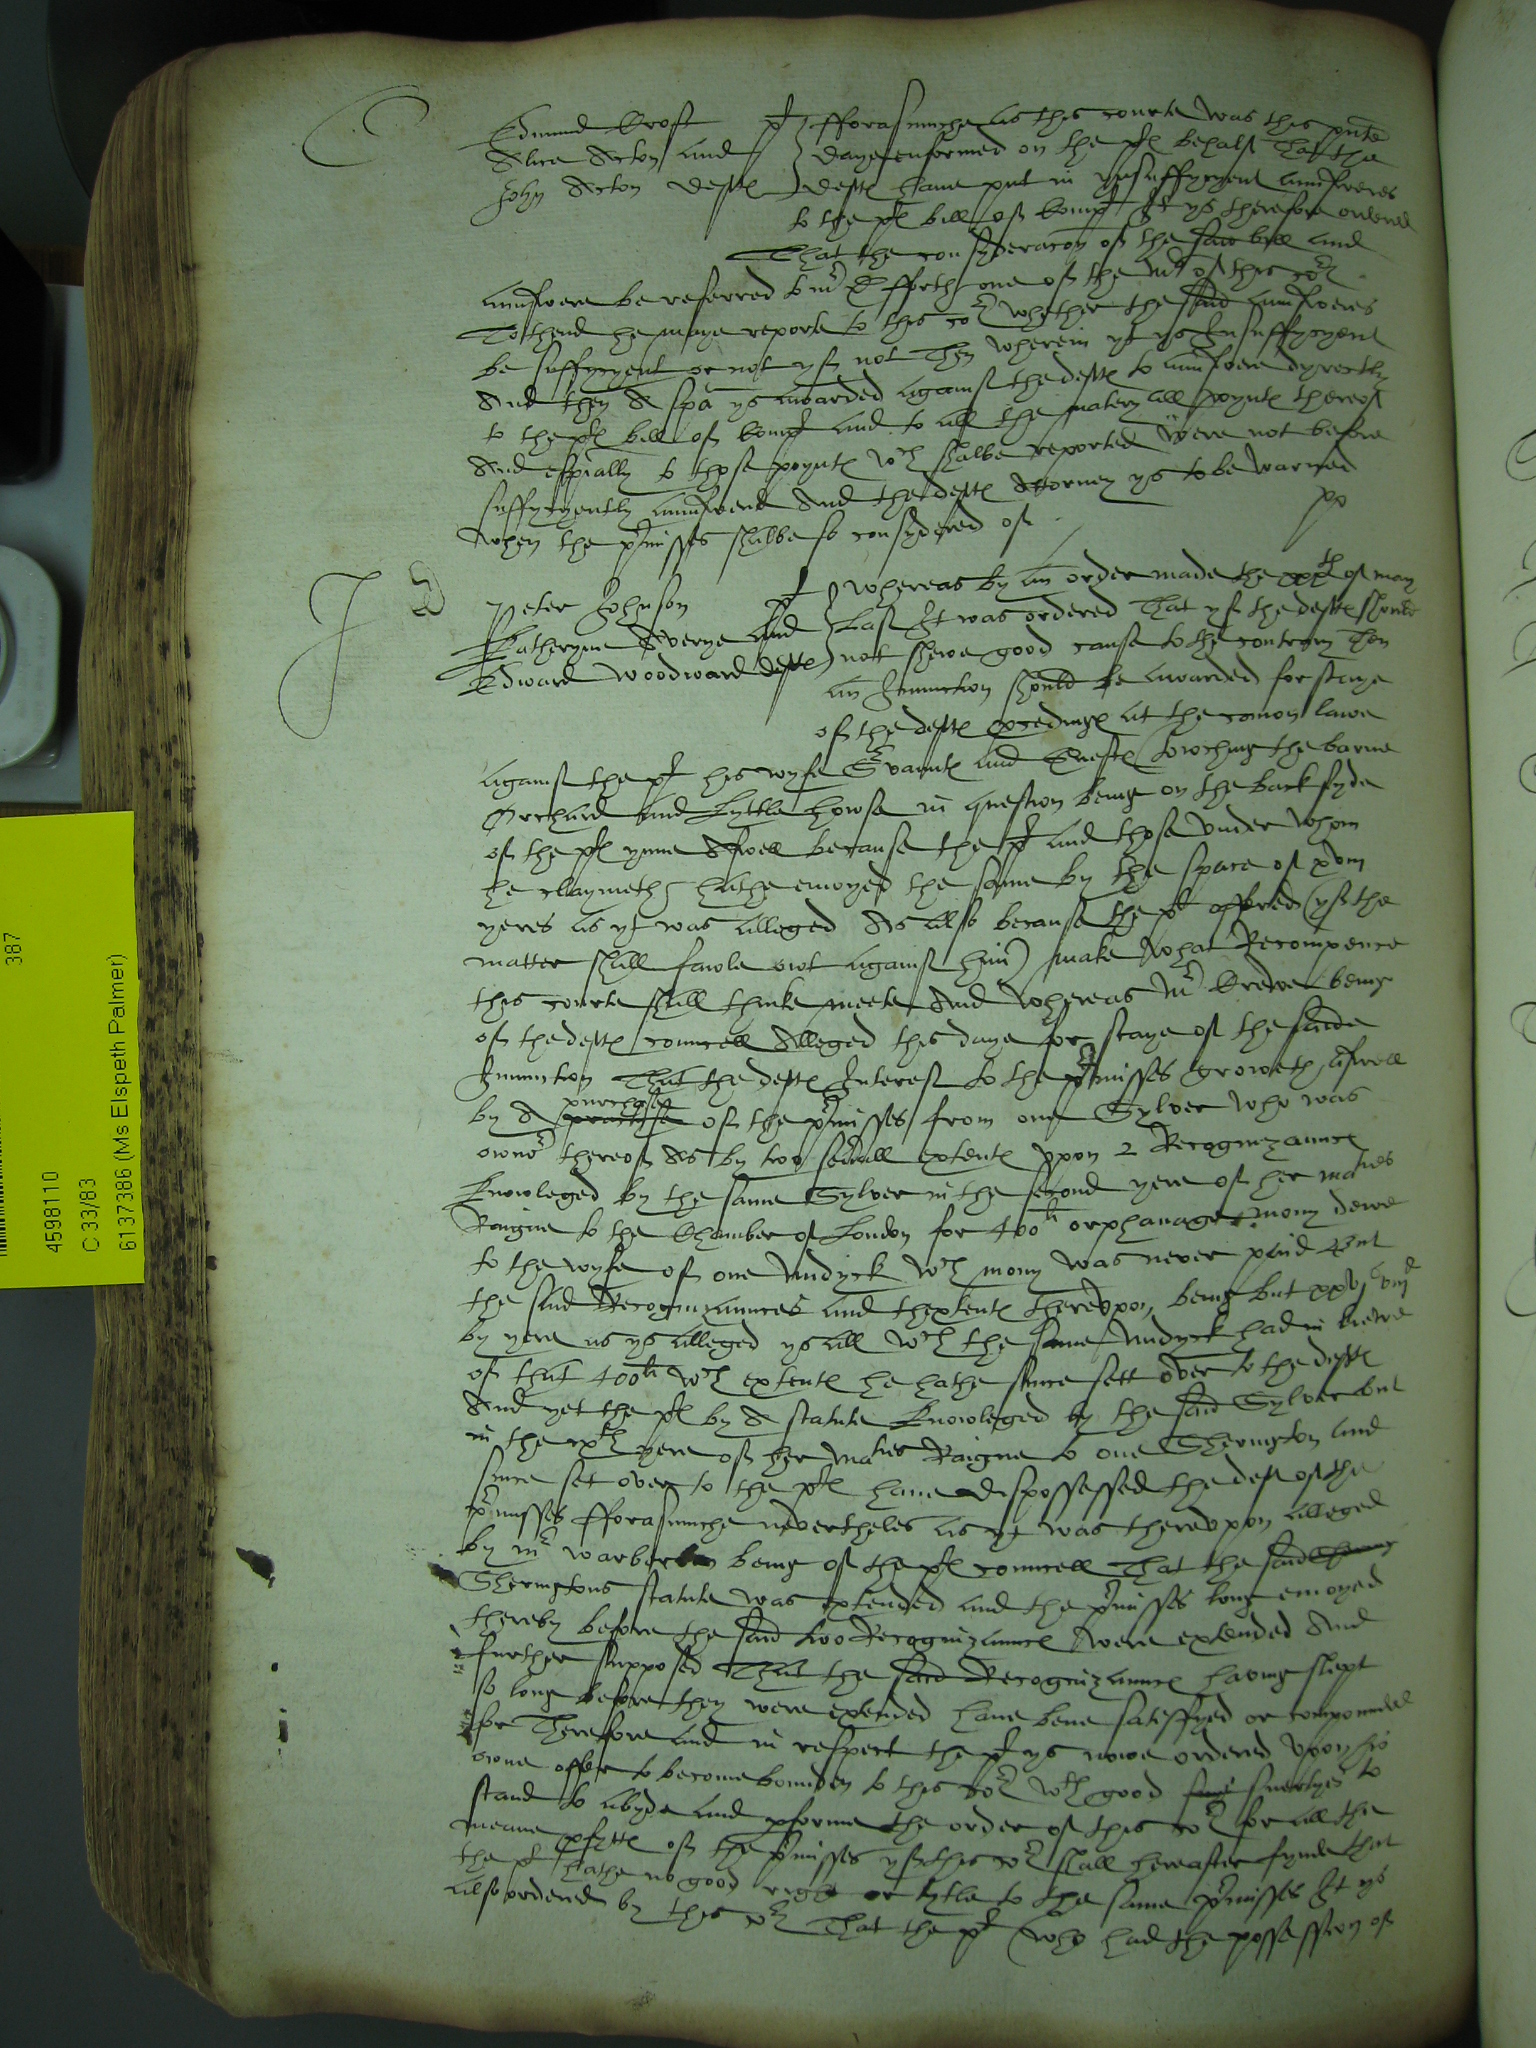 C
Edmund Croft pl
Alice Acton and
John Acton deftes
fforasmuche as this courte was this pnte
daye enformed on the ples behalf That the
deftes have put in insuffycyent aunsweres
to the ples bill of compt It ys therefore ordered
That the consyderacon of the said bill and
aunswere be referred to mr D fforth one of the mrs of this cort
Tothend he maye reporte to this cort whether the said aunsweres
be suffycyent or not yf not Then wherein yt ys Insuffycyent
And then A spa ys awarded against the deftes to aunswere dyrectly
to the ples bill of compt and to all the materyall poyntes thereof
And espially to those poyntes wch shalbe reported were not before
suffycyently aunswered And the deftes Attorney ys to be warned
when the pmisses shalbe so consydered of
pp
J
Peter Johnson pl
Katheryne Averye and
Edward Woodward deftes
Whereas by an order made the xxxth of may
Last It was ordered That yf the deftes should
not shewe good cause to the contrary Then
an Iniunction should be awarded for staye
of the deftes pcedinges at the comon lawe
against the pl his wyfe Srvauntes and Guestes towching the barne
Orchard and Lyttle howse in question being on the back syde
of the ples ynne Aswell because the pl and those under whom
he claymeth hathe enioyed the same by the space of xviii
yeres as yt was alleged As also because the pl offred (yf the
matter shall fawle owt against him) make what Recompence
this courte shall thinke meete And whereas Mr Crewe being
of the deftes councell Alleged this daye for staye of the saide
Iniunction That the deftes Interest to the pmisses groweth aswell
by A practise purchase of the pmisses from one Sylver who was
ownor thereof As by two severall extentes upon 2 Recognizaunces
knowleged by the same Sylver in the second yere of her maties
Raigne to the Chamber of London for 400li orphanage mony dewe
to the wyfe of one Undyck wch mony was never paid But
the said Recognizaunces and thextentes thereupon being but xxvjs viijd
by yere as ys alleged ys all wch the same Undyck had in liewe
of that 400li wch extentes he hathe since sett over to the deftes
And yet the ples by A statute knowleged by the said Sylver but
in the ixth yere of her maties Raigne to one Sherington and
since set over to the ples have dispossessed the deft of the
pmisses fforasmuche nevertheles as yt was thereupon alleged
by mr warberton being of the ples councell That the said
Sheringtons statute was extended and the pmisses long enioyed
thereby before the said two Recognizaunces were extended And
further supposed That the said Recognizaunces having slept
so long before they were extended have bene satisfyed or compounded
for Therefore and in respect the pl ys nowe ordered upon his
owne offer to become bounden to this cort wth good suertyes to
stand to abyde and pforme the order of this cort for all the
meane pfyttes of the pmisses yf this cort shall hereafter fynde that
the pl hathe no good right or tytle to the same pmisses It ys
also ordered by this cort That the pl (who had the possession of
387
4598110
C 33/83
6137386 (Ms Elspeth Palmer)